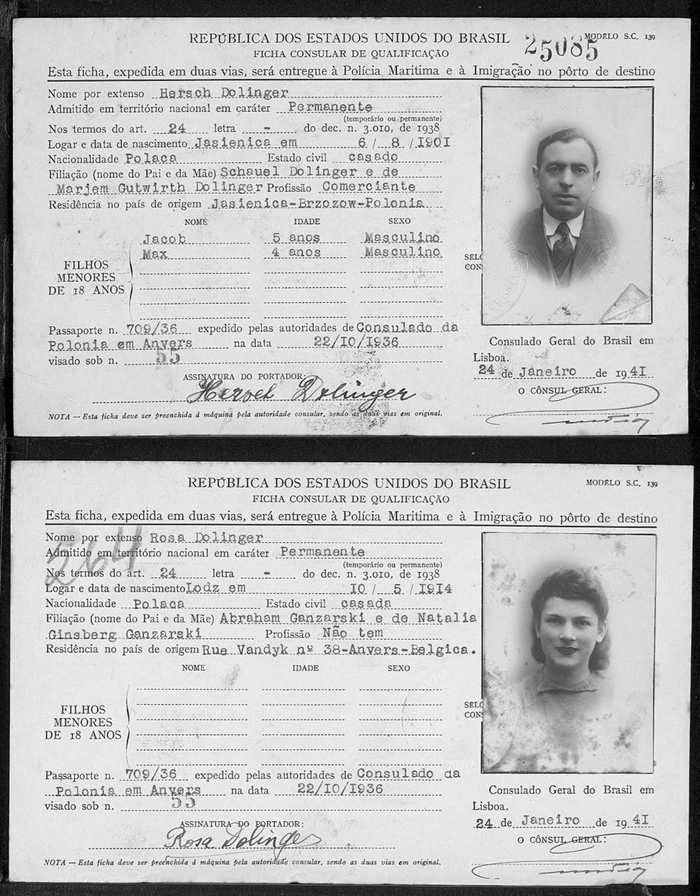 REPÚBLICA DOS ESTADOS UNIDOS DO BRASIL MODÊLO S.C. 139
25085
FICHA CONSULAR DE QUALIFICAÇÃO
Esta ficha, expedida em duas vias, será entregue à Polícia Maritima e à Imigração no pôrto de destino
Nome por extenso Hersch Dolinger
Admitido em território nacional em caráter Permanente
(temporário ou permanente)
Nos termos do art. 24 letra - do dec. n. 3.010, de 1938
Logar e data de nascimento Jasienica em 6 / 8 / 1901
Nacionalidade Polaca Estado civil casado
Filiação (nome do Pai e da Mãe) Schauel Dolinger e de
Marjem Gutwirth Dolinger Profissão Comerciante
Residência no país de origem Jasienica-Brzozow-Polonia
NOME IDADE SEXO
Jacob 5 anos Masculino
Max 4 anos Masculino
FILHOS
MENORES
DE 18 ANOS
Passaporte n. 709/36 expedido pelas autoridades de Consulado da
Polonia em Anvers na data 22/10/1936
visado sob n. 55
ASSINATURA DO PORTADOR:
Dolinger
NOTA — Esta ficha deve ser preenchida á máquina pela autoridade consular, sendo as duas vias em original.
SÊLO
CONS
Consulado Geral do Brasil em
Lisboa.
24 de Janeiro de 1941
O CÔNSUL GERAL:
REPÚBLICA DOS ESTADOS UNIDOS DO BRASIL MODÊLO S.C. 139
FICHA CONSULAR DE QUALIFICAÇÃO
Esta ficha, expedida em duas vias, será entregue à Polícia Maritima e à Imigração no pôrto de destino
Nome por extenso Rosa Dolinger
264
Admitido em território nacional em caráter Permanente
(temporário ou permanente)
Nos termos do art. 24 letra - do dec. n. 3.010, de 1938
Logar e data de nascimento Lodz em 10 / 5 / 1914
Nacionalidade Polaca Estado civil casada
Filiação (nome do Pai e da Mãe) Abraham Ganzarski e de Natalia
Ginsberg Ganzarski Profissão Não tem
Residência no país de origem Rue Vandyk nº 38-Anvers-Belgica.
NOME IDADE SEXO
FILHOS
MENORES
DE 18 ANOS
Passaporte n. 709/36 expedido pelas autoridades de Consulado da
Polonia em Anvers na data 22/10/1936
visado sob n. 55
ASSINATURA DO PORTADOR:
Rosa Dolinger
NOTA — Esta ficha deve ser preenchida á máquina pela autoridade consular, sendo as duas vias em original.
SÊLO
CONS
Consulado Geral do Brasil em
Lisboa.
24 de Janeiro de 1941
O CÔNSUL GERAL: